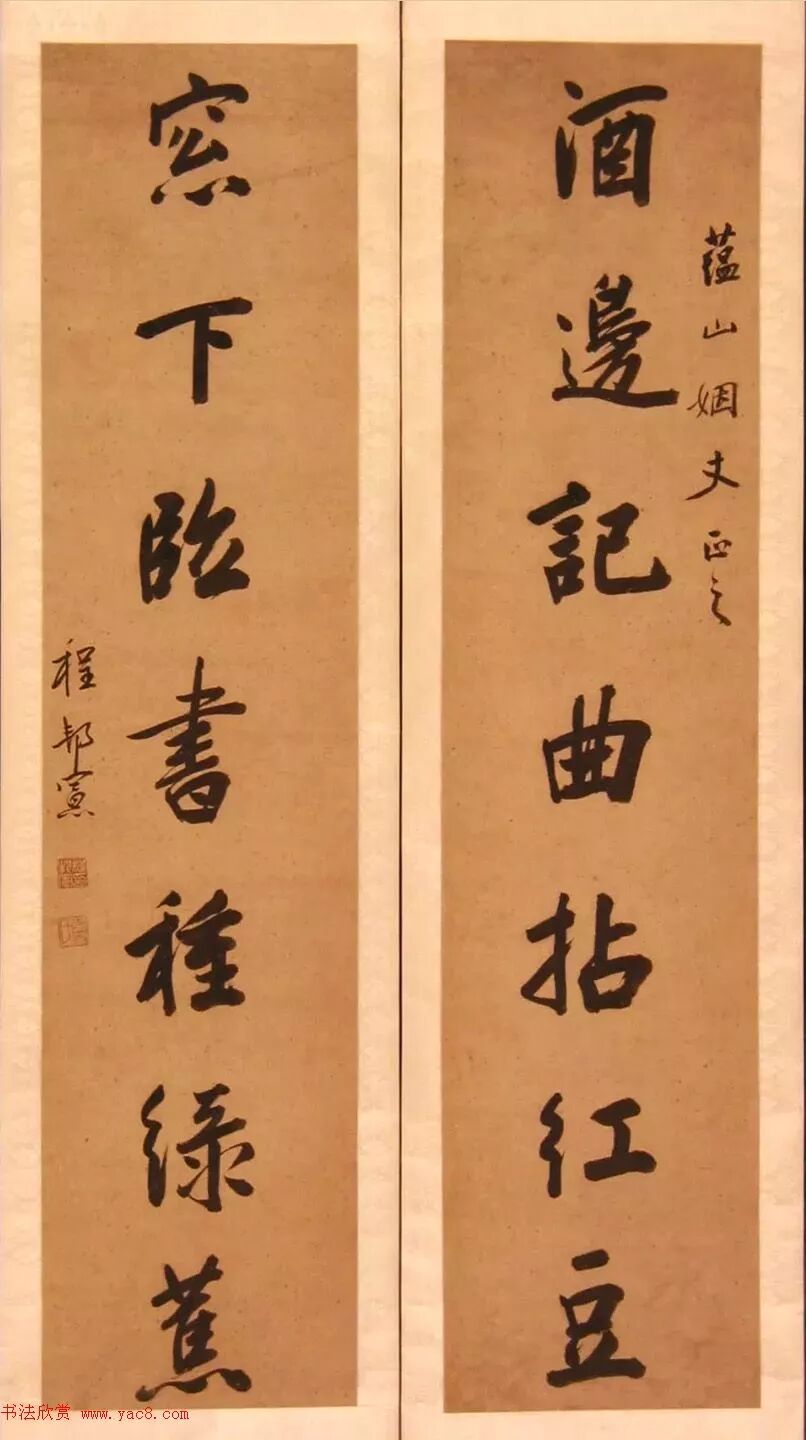 蘊山姻丈正之
酒邊記曲拈紅豆
窓下臨書種綠蕉
程邦憲
书法欣赏 www.yac8.com